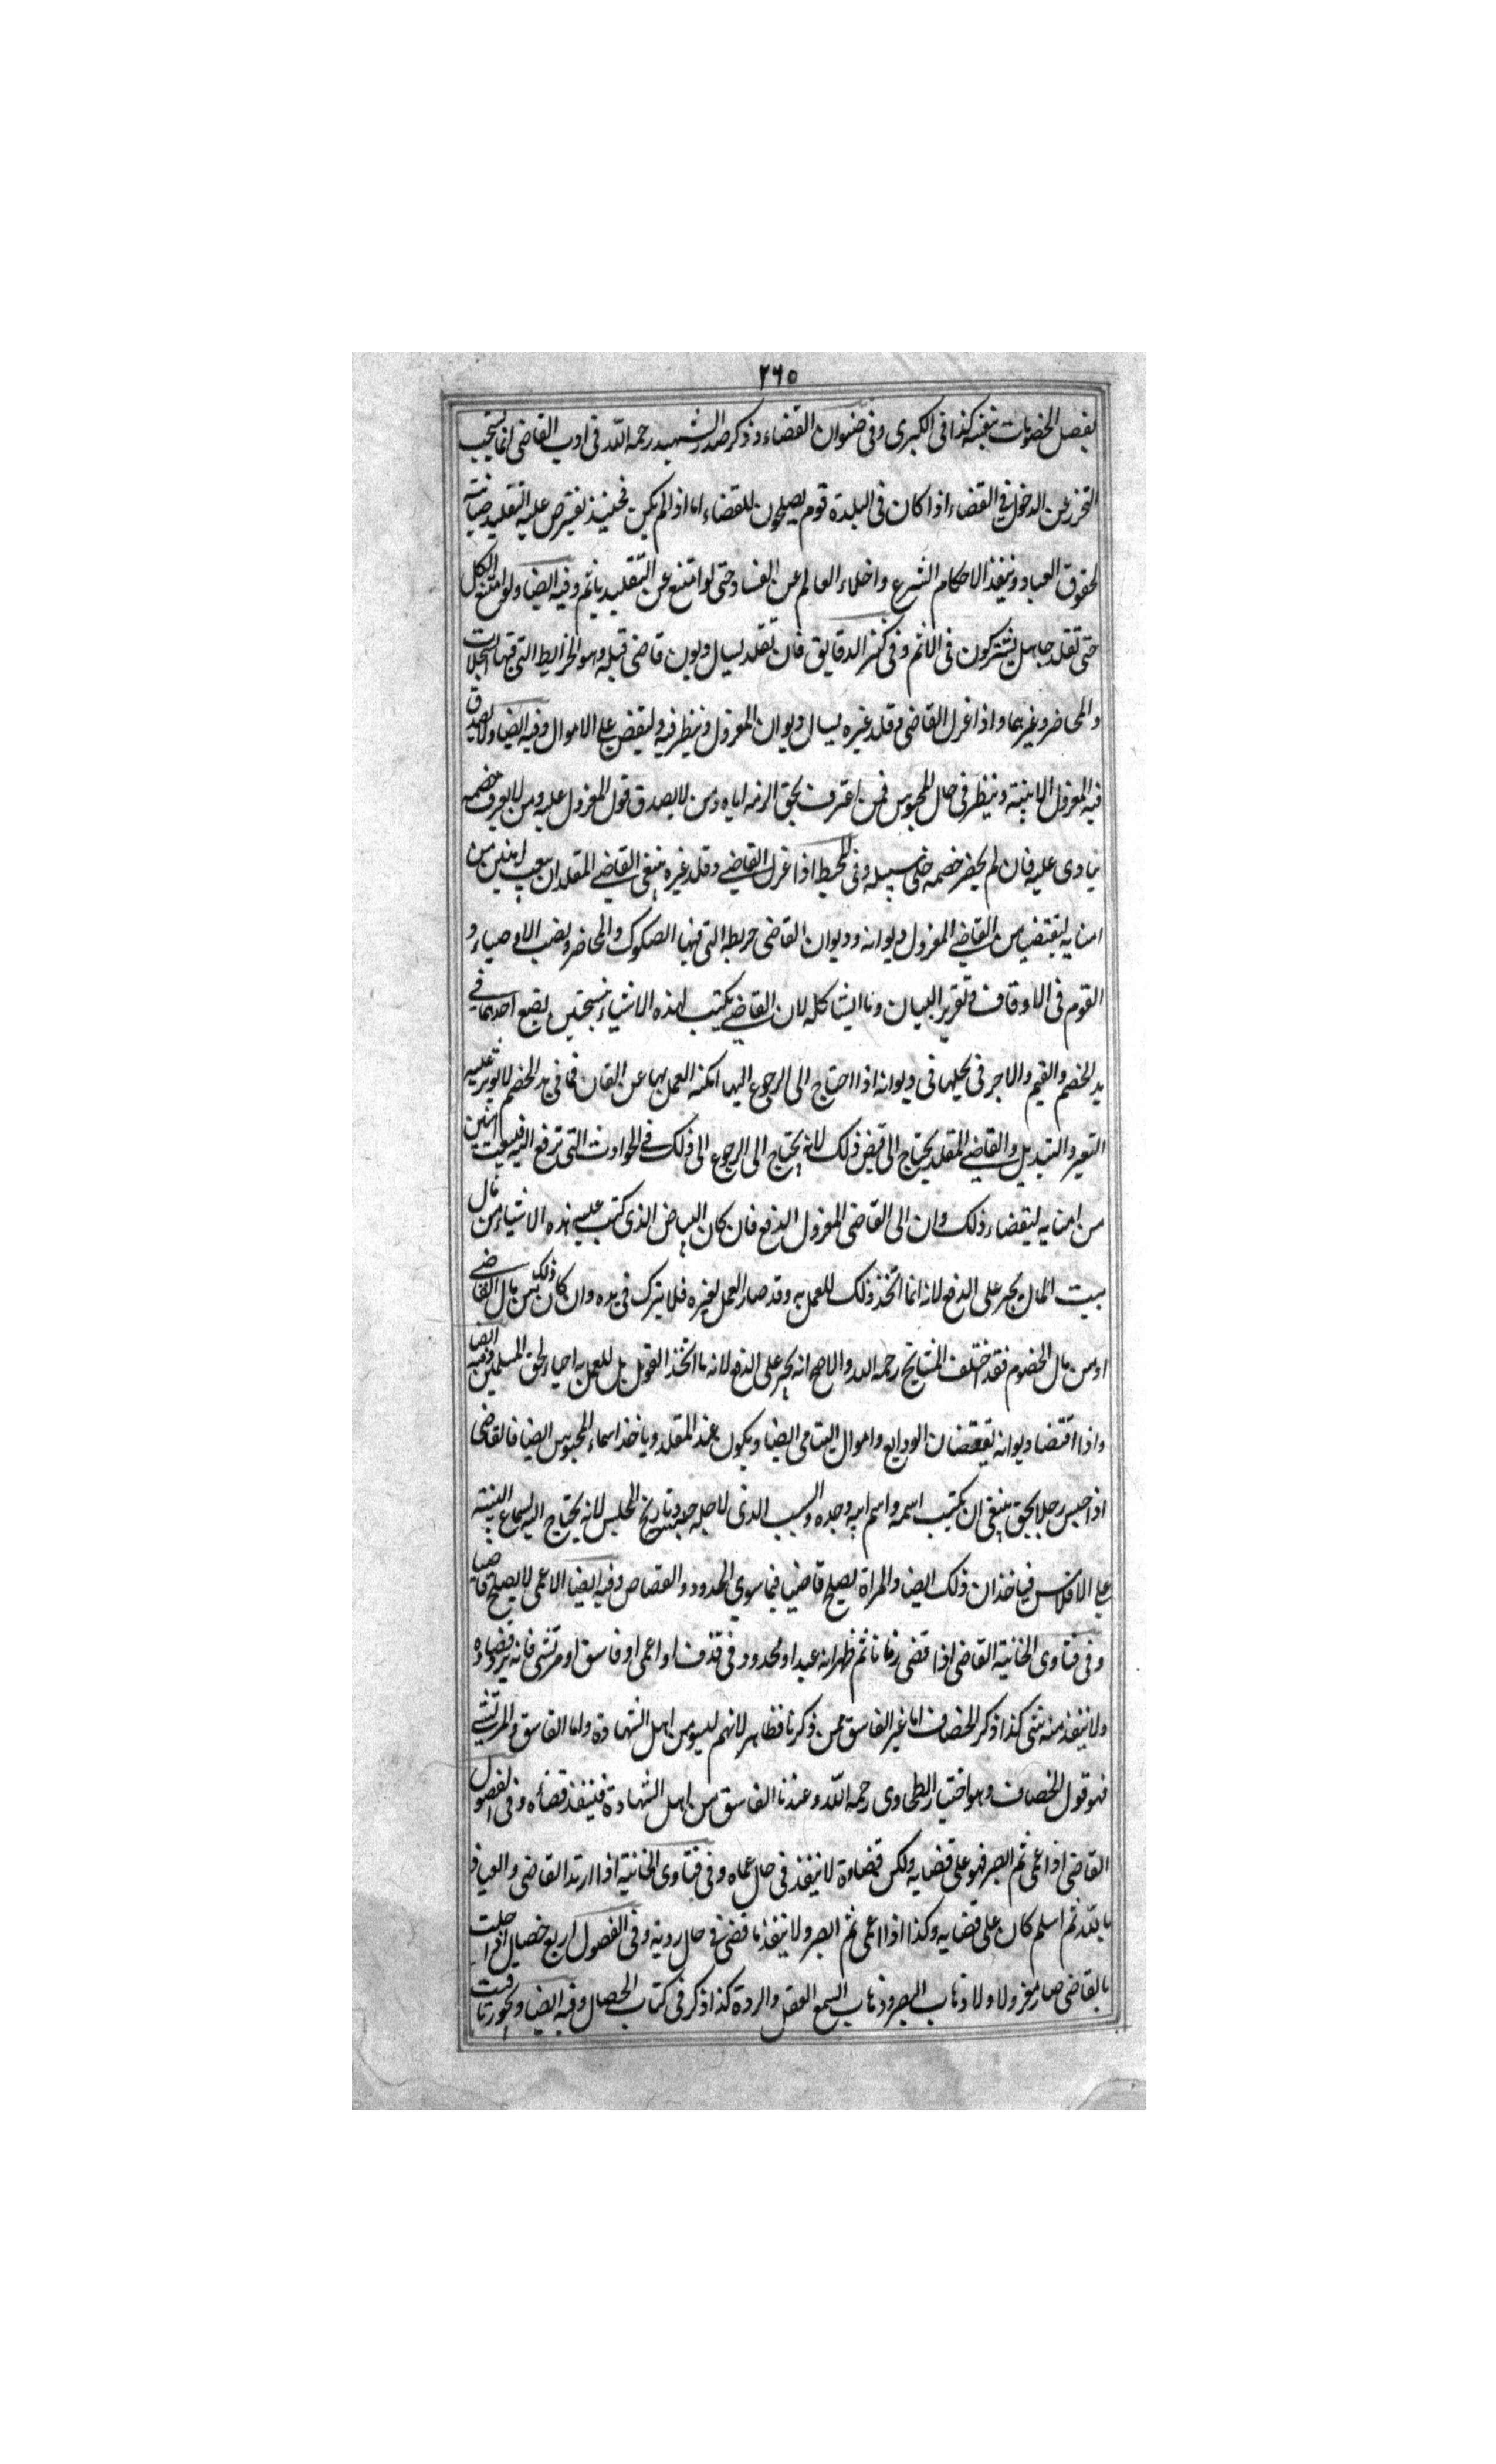 ٢٦٥
بفصل الخصومات بنفسه كذا فى الكبرى وفى صنوان القضاء وذكر صدر الشهيد رحمه الله فى ادب القاضى انما يستحب
التحرز عن الدخول فى القضاء اذا كان فى البلدة قوم يصلحون للقضاء اما اذا لم يكن فحينئذ يفترض عليه التقليد صيانته
لحقوق العباد وتنفيذ الاحكام الشرع واخلاء العالم عن الفساد حتى لو امتنع عن التقليد ياثم وفيه ايضا ولو امتنع الكل
حتى تقلد جاهل يشتركون فى الاثم وفى كنز الدقايق فان تقلد يسال ديون قاضى قبله وهو الخرايط التى فيها السجلات
والمحاضر وغيرهما واذا عزل القاضى وقلد غيره يسال ديوان المعزول وينظر فيه وليقض على الاموال وفيه ايضا ولا يصدق
فيه المعزول الا ببينة وينظر فى حال المحبوس فمن اعترف بحق الزمه اياه ومن لا يصدق قول المعزول عليه ومن لا يعرف خصمه
ينادى عليه فان لم يحضر خصمه خلى سبيله وفى المحيط اذا عزل القاضى وقلد غيره ينبغى القاضى المقلد ان يبعث اثنين من
امنايه ليقتضيا من القاضى المعزول ديوانه وديوان القاضى خريطه التى فيها الصكوك والمحاضر ونصب الاوصياء و
القوم فى الاوقاف وتقرير البيان وما ايشا كله لان القاضى يكتب لهذه الاشياء نسختين يضع احدهما فى
يد الخصم والقيم والاجر فى يحليها فى ديوانه اذا احتاج الى الرجوع اليها امكنه العمل بها عن القان فما فى يد الخصم لا يؤثر عليه
التعير والتبديل والقاضى المقلد يحتاج الى قبض ذلك لانه يحتاج الى الرجوع الى ذلك فى الحوادث التى ترفع اليه فيبعث اثنين
من امنايه ليقضاء ذلك وان الى القاضى المعزول الدفع فان كان البياض الذى كتب عليه هذه الاشياء من مال
بيت المال يجبر على الدفع لانه انما اتخذ ذلك للعمل به وقد صار العمل لغيره فلا يترك فى يده وان كان ذلك من مال القاضى
او من مال الخصوم فقد اختلف المشايخ رحمه الله والاصح انه يجبر على الدفع لانه ما اتخذ القول بل للعمل به احياء لحق المسلمين وفيه ايضا
واذا اقتضا ديوانه يقبضان الودايع واموال اليتامى ايضا ويكون عند المقلد وياخذ اسماء المحبوس ايضا فالقاضى
اذا حبس رجلا بحق ينبغى ان يكتب اسمه واسم ابيه وجده والسبب الذى لاجله حبسه وتاريخ الحلبس لانه يحتاج اليه لسماع البينة
على الافلاس فياخذان ذلك ايضا والمراة يصلح قاضيا فيما سوى الحدود والقصاص وفيه ايضا الاعمى لا يصلح قاضيا
وفى فتاوى الخانية القاضى اذا قضى زمانا ثم ظهر انه عبد او محدود فى قذف او اعمى او فاسق او مرتشى فانه يرد قضاوه
ولا ينفذ منه شى كذا ذكر الخصاف اما غير الفاسق ممن ذكرنا فظاهر لانهم ليسو من اهل الشهادة واما الفاسق والمرتشى
فهو قول الخصاف وهو اختيار الطحاوى رحمه الله وعندنا الفاسق من اهل الشهادة فينفذ قضاه وفى الفصول
القاضى اذا عمى ثم ابصر فهو على قضايه ولكن قضاوه لا ينفذ فى حال عماه وفى فتاوى الخانية اذا ارتد القاضى والعياذ
بالله ثم اسلم كان على قضايه وكذا اذا اعمى ثم ابصر ولا ينفذ ما قضى فى حال ردته وفى الفصول اربع خصيال اذا حلت
بالقاضى صار معزولا ولا ذهاب البصر وذهاب السمع العقل والردة كذا ذكر فى كتاب الخصال وفيه ايضا ويجوز تاقيت